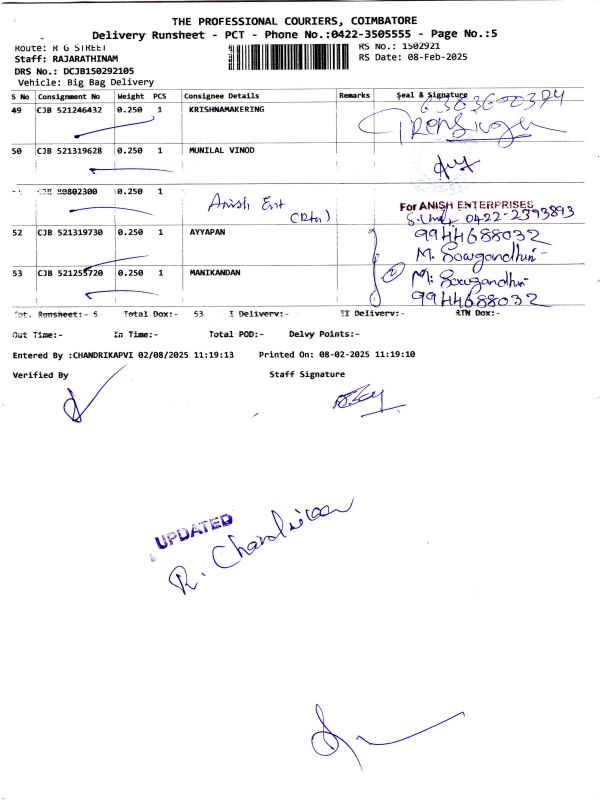 THE PROFESSIONAL COURIERS, COIMBATORE
Delivery Runsheet - PCT - Phone No.:0422-3505555 - Page No.:5
Route: R G STREET
RS No.: 1502921
Staff: RAJARATHINAM
RS Date: 08-Feb-2025
DRS No.: DCJB150292105
Vehicle: Big Bag Delivery
S No Consignment No Weight PCS Consignee Details Remarks Seal & Signature
49 CJB 521246432 0.250 1 KRISHNAMAKERING
50 CJB 521319628 0.250 1 MUNILAL VINOD
80802300 0.250 1 Anish Ent
For ANISH ENTERPRISES
0422-2393893
52 CJB 521319730 0.250 1 AYYAPAN 9944688032
M. Sowgandhini
53 CJB 521255720 0.250 1 MANIKANDAN M. Sowgandhini
9944688032
Tot. Runsheet:- 5 Total Dox:- 53 I Delivery:- II Delivery:- RTN Dox:-
Out Time:- In Time:- Total POD:- Delvy Points:-
Entered By :CHANDRIKAPVI 02/08/2025 11:19:13 Printed On: 08-02-2025 11:19:10
Verified By Staff Signature
UPDATED
R. Chandrikaa